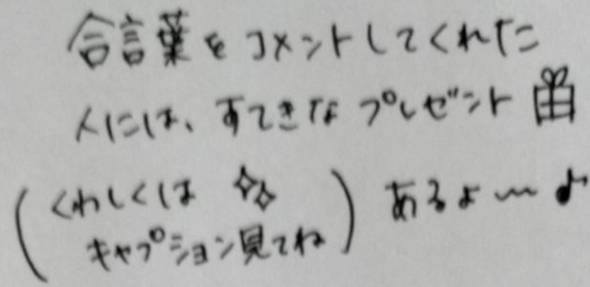 合言葉をコメントしてくれた
人には、すてきなプレゼント
(くわしくは
キャプション見てね) あるよ〜♪